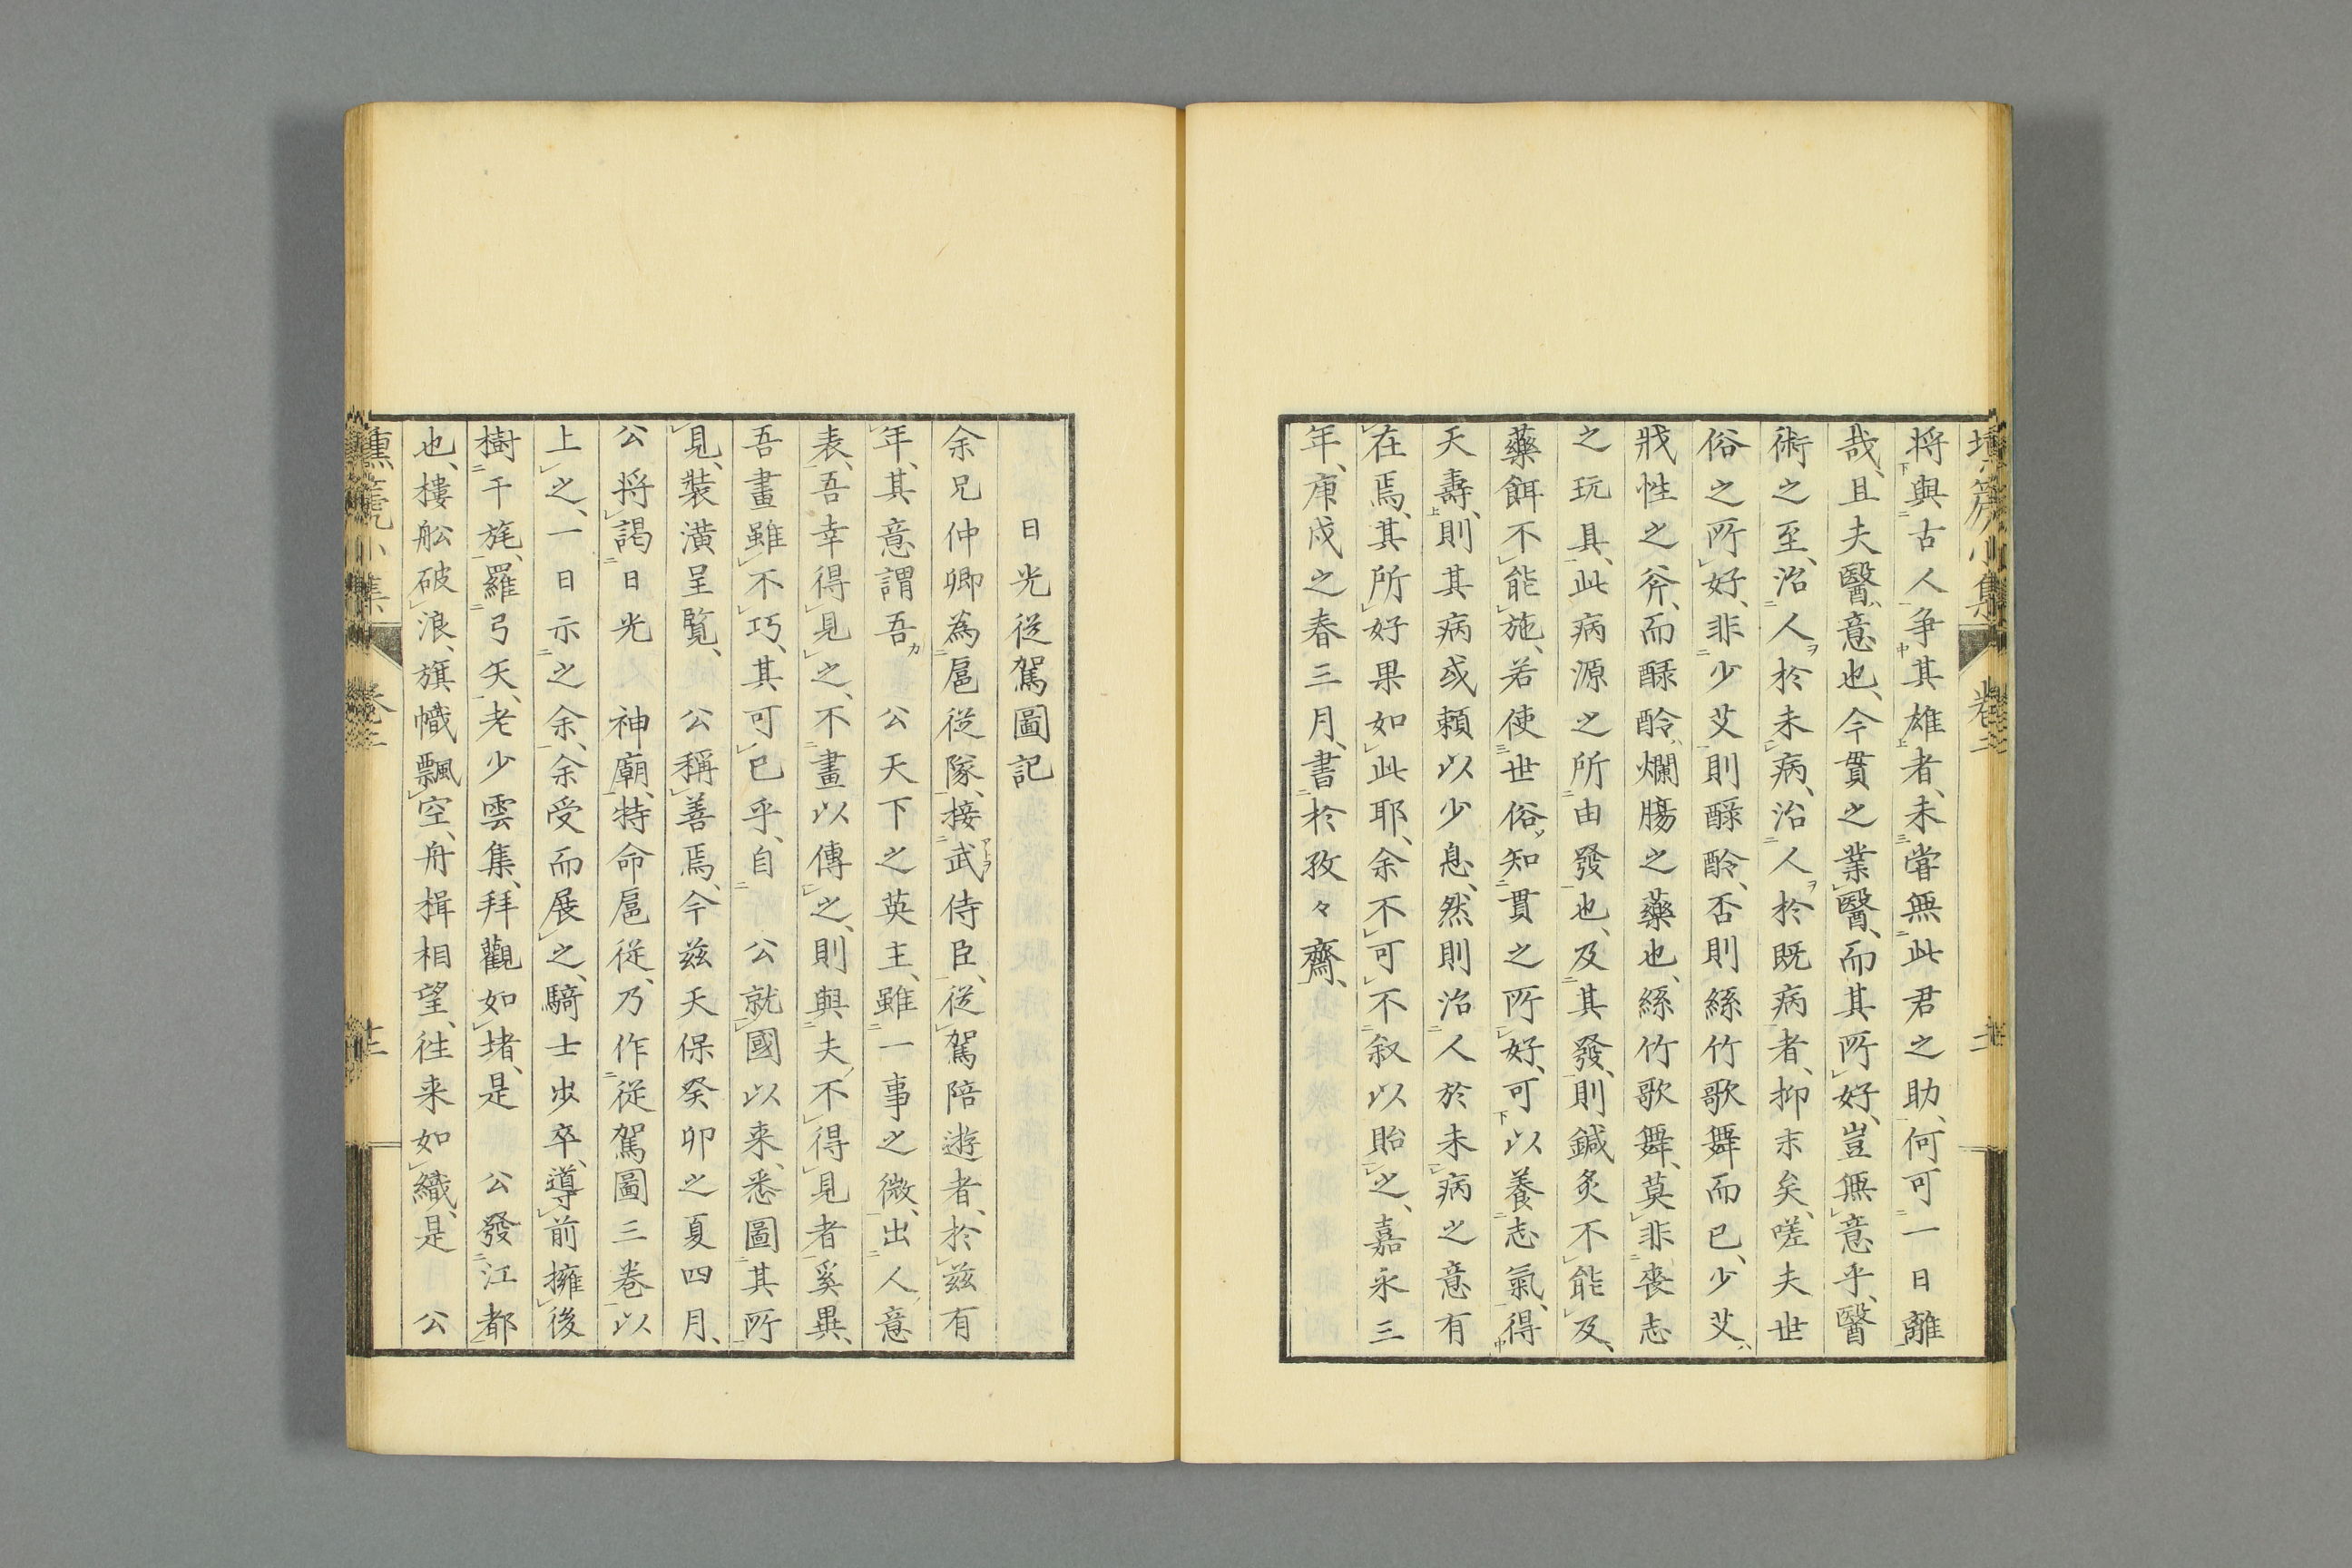 將與古人爭其雄者、未嘗無此君之助、何可一日離
哉、且夫醫意也、今貫之業醫、而其所好、豈無意乎、醫
術之至、治人於未病、治人於既病者、抑末矣、嗟夫世
俗之所好、非少艾則醁酃、否則絲竹歌舞而已、少艾、
戕性之斧、而醁酃、爛膓之藥也、絲竹歌舞、莫非喪志
之玩具、此病源之所由發也、及其發、則鍼灸不能及、
藥餌不能施、若使世俗知貫之所好、可以養志氣、得
夭壽、則其病或賴以少息、然則治人於未病之意有
在焉、其所好果如此耶、余不可不叙以貽之、嘉永三
年、庚戌之春三月、書於孜々齋、
日光從駕圖記
余兄仲卿為扈從隊、接武侍臣、從駕陪遊者、於茲有
年、其意謂吾　公天下之英主、雖一事之微、出人意
表、吾幸得見之、不畫以傳之、則與夫不得見者奚異、
吾畫雖不巧、其可已乎、自　公就國以来、悉圖其所
見、裝潢呈覽、　公稱善焉、今茲天保癸卯之夏四月、
公將謁日光　神廟、特命扈從、乃作從駕圖三卷以
上之、一日示之余、余受而展之、騎士步卒、導前擁後
樹干旄、羅弓矢、老少雲集、拜觀如堵、是　公發江都
也、樓舩破浪、旗幟飄空、舟楫相望、徃来如織、是　公